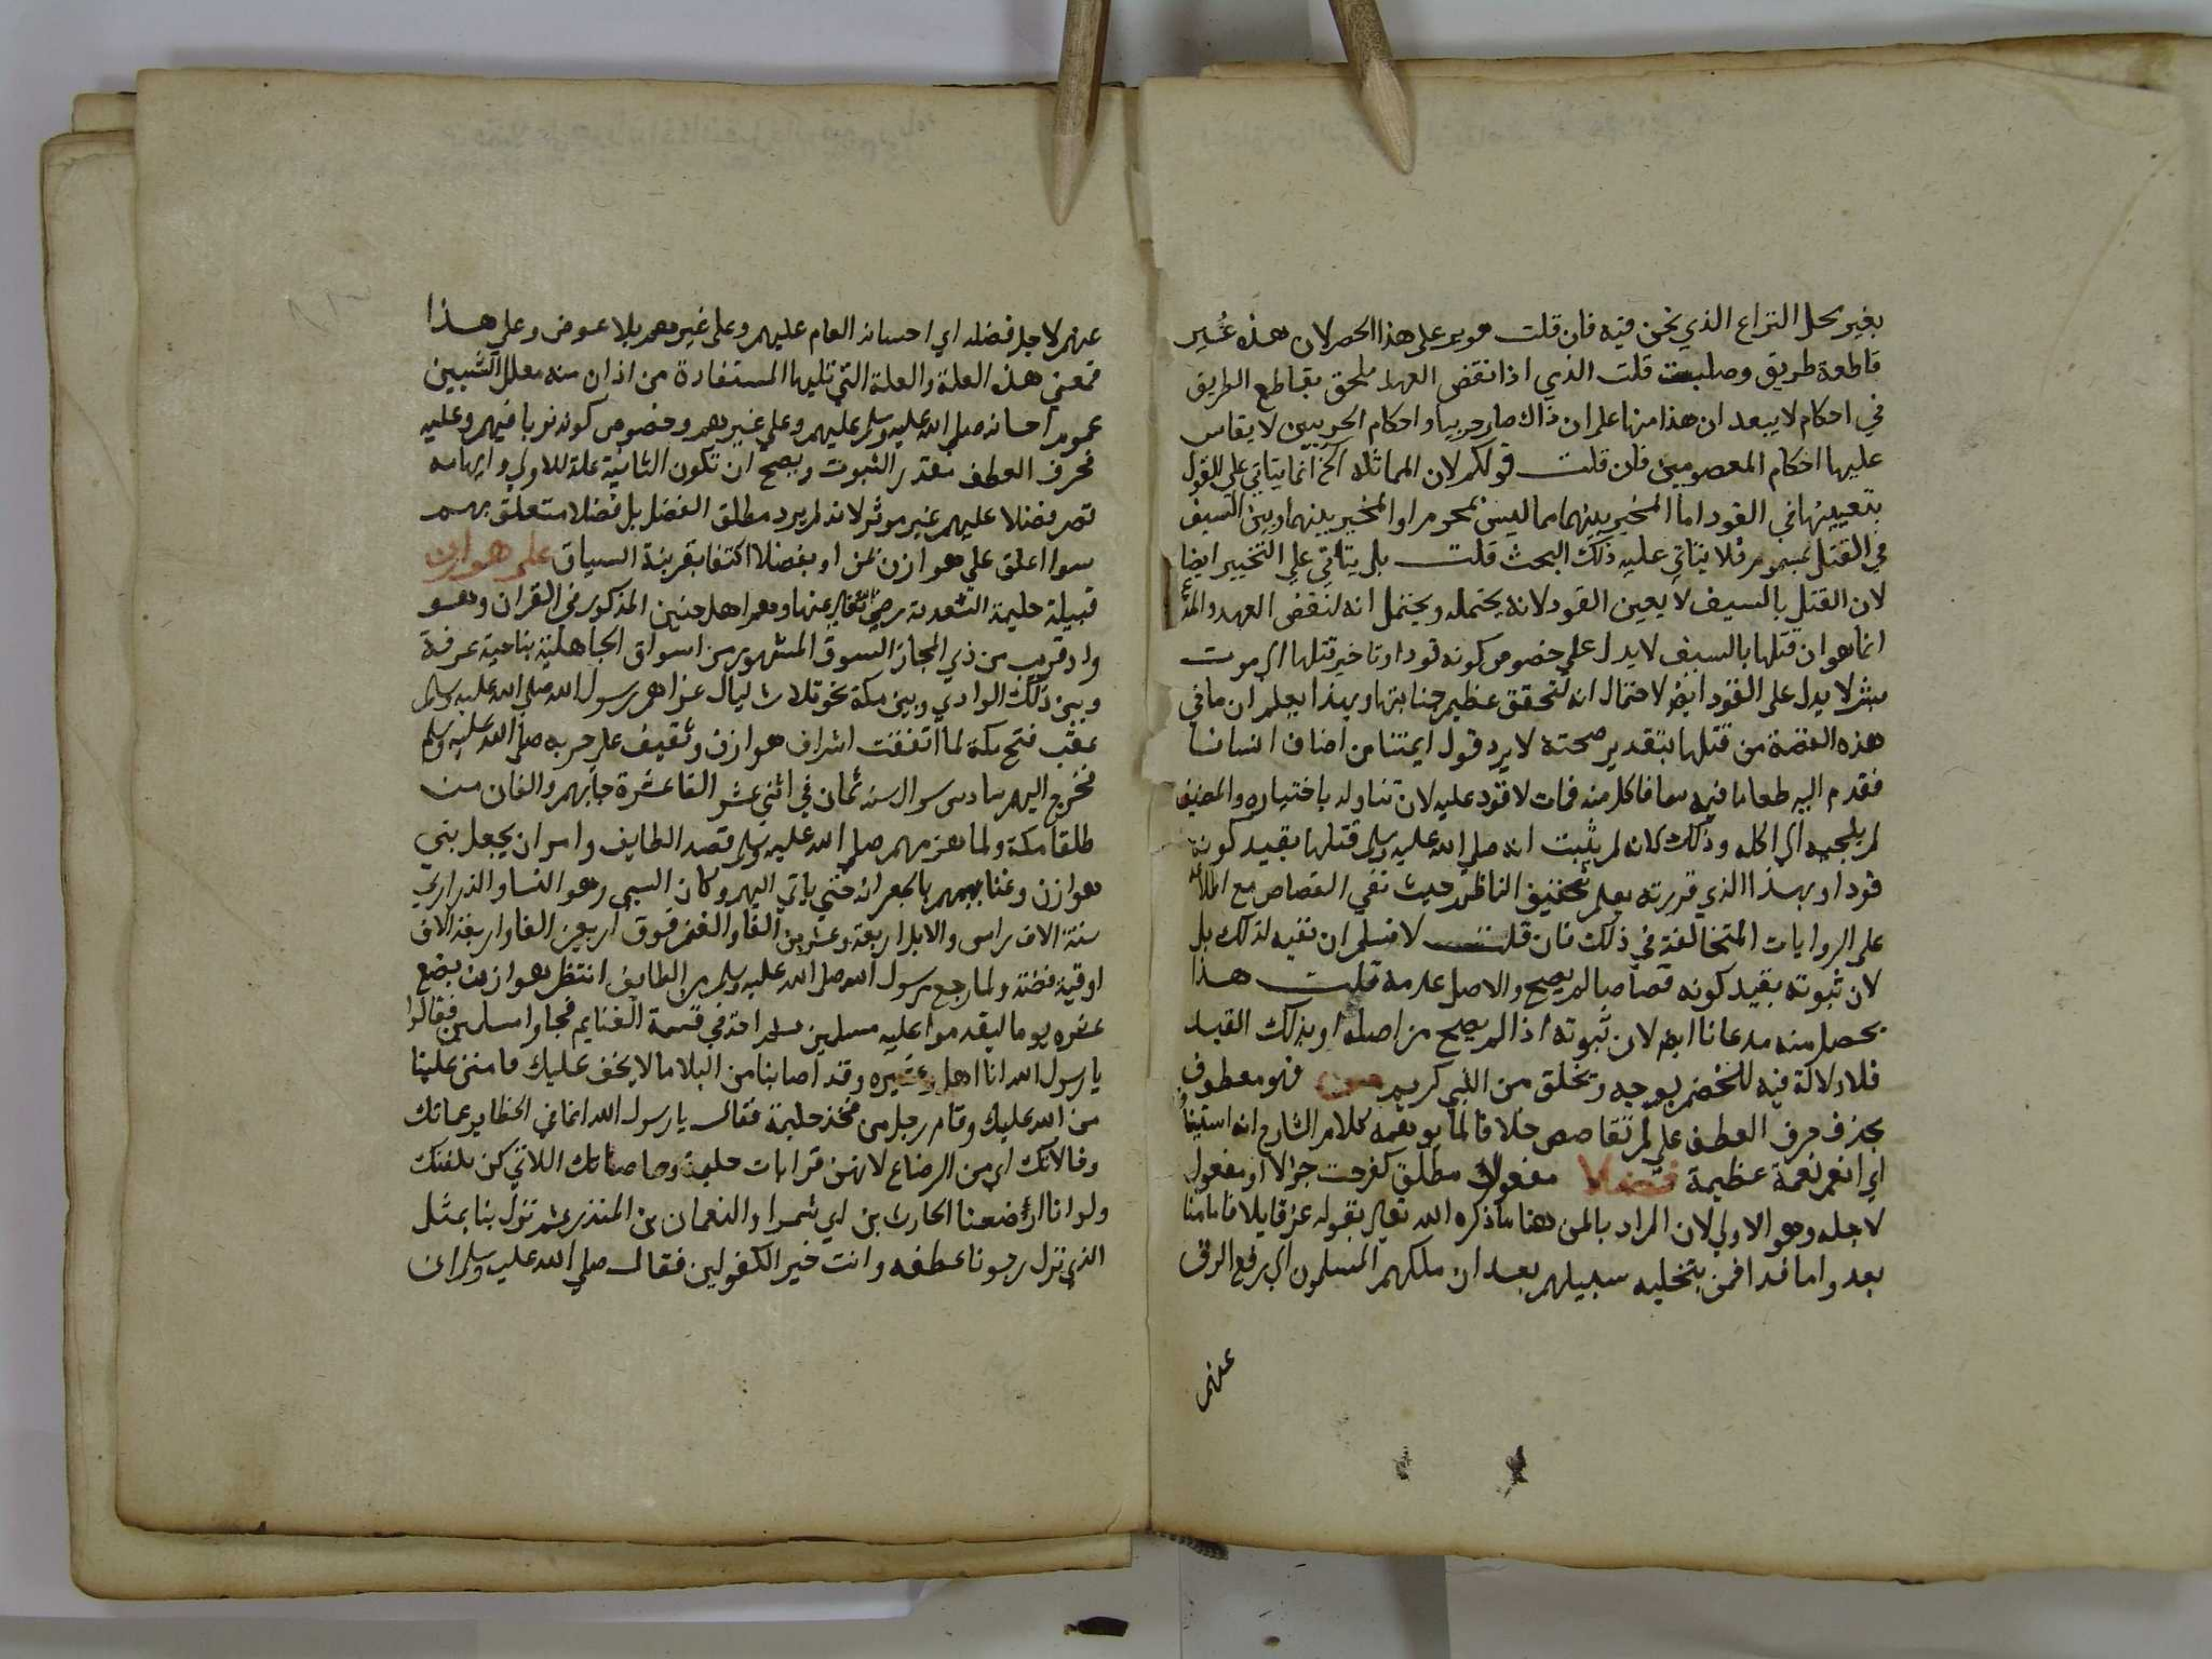 بغير محل النزاع الذي نحن فيه فان قلت هو يرد على هذا الحصر لان هذه غير
قاطعة طريق وصلبت قلت الذي اذا نقض العهد ملحق بقاطع الطريق
في احكام لا يبعد ان هذا منها على ان ذاك صار حربيا واحكام الحربيين لا يقاس
عليها احكام المعصومين فان قلت قولكم لان المماثلة الخ انما يتاتي على القول
بتعيينها في القود اما المخير بينهما مما ليس بمحرم او المخير بينهما وبين السيف
في القتل بمسموم فلا يتاتي عليه ذلك البحث قلت بل يتاتي علي التخيير ايضا
لان القتل بالسيف لا يعين القود لانه يحتمله ويحتمل انه لنقض العهد والمدعي
انما هو ان قتلها بالسيف لا يدل علي خصوص كونه قودا وتاخير قتلها الي موت
بشر لا يدل على القود ايضا لاحتمال انه لتحقق عظيم جنايتها وبهذا يعلم ان ما في
هذه القصة من قتلها بتقدير صحته لا يرد قول ايمتنا من اضاف انسانا
فقدم اليه طعاما فيه سم فاكل منه فمات لا قود عليه لان تناوله باختياره والمضيف
لم يلجيه الي اكله وذلك لانه لم يثبت انه صلي الله عليه وسلم قتلها بقيد كونه
قودا وبهذا الذي قررته يعلم تحقيق الناظم حيث نفي القصاص مع اطلاعه
على الروايات المتخالفة في ذلك فان قلت لا نسلم ان نفيه لذلك بل
لان ثبوته بقيد كونه قصاصا لم يصح والاصل عدمه قلت هذا
يحصل منه مدعانا ايضا لان ثبوته اذا لم يصح من اصله او بذلك القيد
فلا دلالة فيه للخصم بوجه وتخلق من النبي كريم من فهو معطوف
بحذف حرف العطف علي لم تقاصص خلافا لما يوهمه كلام الشارح انه استينافا
اي انعم نعمة عظيمة فضلا مفعول مطلق كفرحت جذلا او مفعول
لاجله وهو الاولي لان المراد بالمن هنا ما ذكره الله تعالي بقوله عز قايلا فاما منا
بعد واما فدا فمن بتخلية سبيلهم بعد ان ملكهم المسلمون اي برفع الرق
عنهم
عنهم لاجل فضله اي احسانه العام عليهم وعلى غيرهم بلا عوض وعلي هذا
فمعني هذه العلة والعلة التي تليها المستفادة من اذ ان منه معلل الشيئين
عموم احسانه صلي الله عليه وسلم عليهم وعلي غيرهم وخصوص كونه تربا فيهم وعليه
فحرف العطف مقدر الثبوت ويصح ان تكون الثانية علة للاولي وايهامه
قصر فضلا عليهم غير موثر لانه لم يرد مطلق الفضل بل فضلا متعلق بهم
سوا اعلق علي هوازن بمن او بفضلا اكتفا بقرينة السياق على هوازن
قبيلة حليمة السعدية رضي الله تعالي عنها وهم اهل حنين المذكور في القران وهو
واد قريب من ذي المجاز السوق المشهور من اسواق الجاهلية بناحية عرفة
وبين ذلك الوادي وبين مكة نحو ثلاث ليال غزاهم رسول الله صلي الله عليه وسلم
عقب فتح مكة لما اتفقت اشراف هوازن وثقيف علي حربه صلي الله عليه وسلم
فخرج اليهم سادس شوال سنة ثمان في اثني عشر الفا عشرة جا بهم والفان من
طلقا مكة ولما هزمهم صلي الله عليه وسلم قصد الطايف وامر ان يجعل بني
هوازن وغنايمهم بالجعرانة حتي ياتي اليهم وكان السبي وهو النسا والذراري
ستة الاف راس والابل اربعة وعشرين الفا والغنم فوق اربعين الفا واربعة الاف
اوقية فضة ولما رجع رسول الله صلي الله عليه وسلم من الطايف انتظر هوازن بضع
عشره يوما ليقدموا عليه مسلمين ثم اخذ في قسمة الغنايم فجاوا مسلمين فقالوا
يا رسول الله انا اهل وعشيره وقد اصابنا من البلا ما لا يخف عليك فامنن علينا
من الله عليك وقام رجل من فخذ حليمة فقال يا رسول الله انما في الحظاير عماتك
وخالاتك اي من الرضاع لانهن قرابات حليمة وحاضناتك اللاتي كن يلفنك
ولو انا ارضعنا الحارث بن ابي شمر او النعمان بن المنذر ثم نزل بنا بمثل
الذي نزل رجونا عطفه وانت خير الكفولين فقال صلي الله عليه وسلم ان